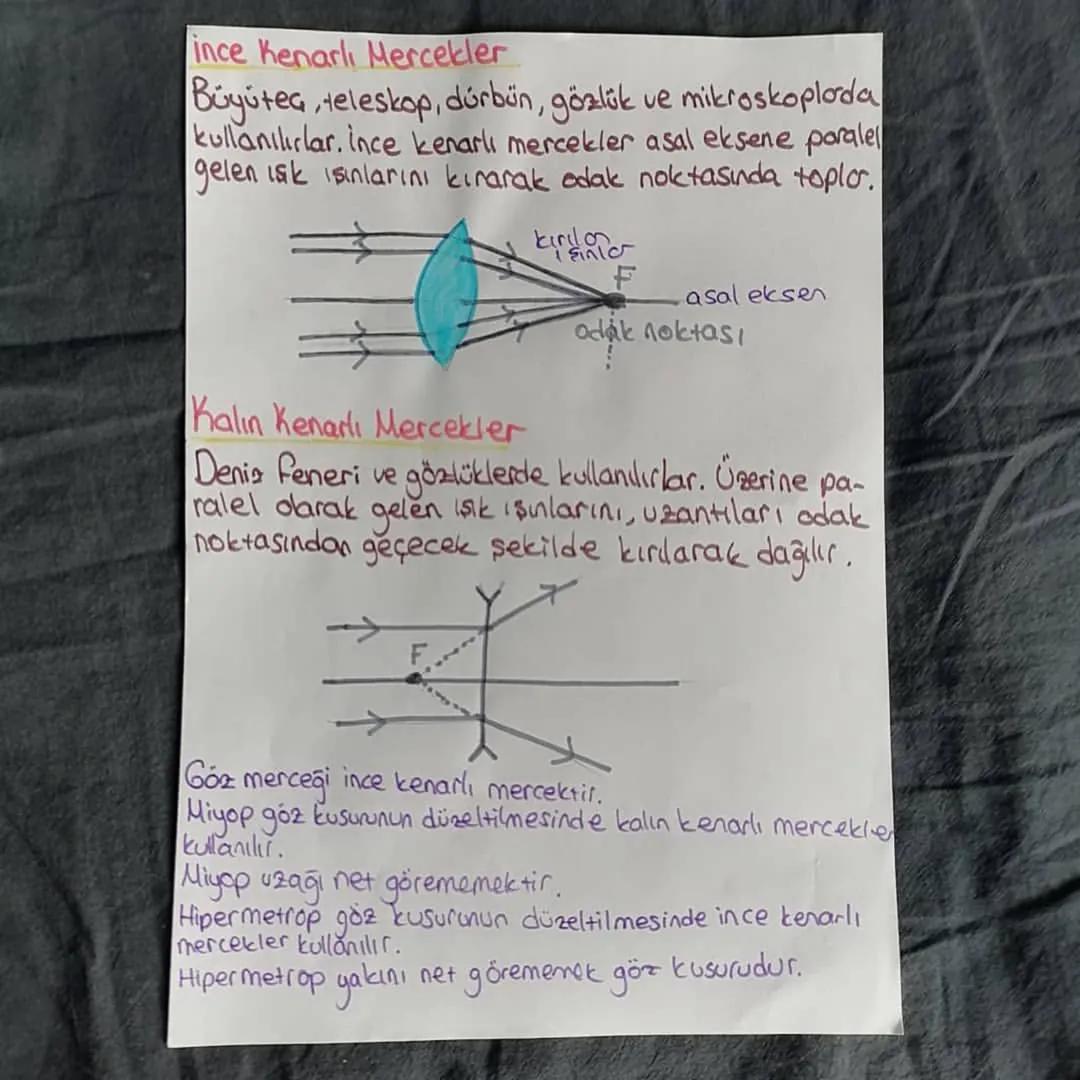 ince Kenarlı Mercekler
Büyüteç, teleskop, dürbün, gözlük ve mikroskoplarda
kullanılırlar. İnce kenarlı mercekler asal eksene paralel
gelen ışık ışınlarını kırarak odak noktasında toplar.
kırılan
ışınlar
F
asal eksen
odak noktası
Kalın Kenarlı Mercekler
Deniz feneri ve gözlüklerde kullanılırlar. Üzerine pa-
ralel olarak gelen ışık ışınlarını, uzantıları odak
noktasından geçecek şekilde kırılarak dağılır.
F
Göz merceği ince kenarlı mercektir.
Miyop göz kusurunun düzeltilmesinde kalın kenarlı mercekler
kullanılır.
Miyop uzağı net görememektir.
Hipermetrop göz kusurunun düzeltilmesinde ince kenarlı
mercekler kullanılır.
Hipermetrop yakını net görememek göz kusurudur.